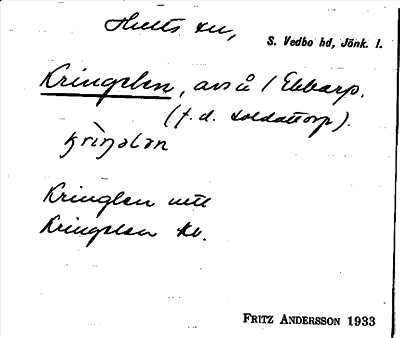 Hults sn,
S. Vedbo hd, Jönk. l.
Kringelen, avs å 1 Ebbarp.
(f. d. soldattorp).
kriŋələn
Kringlen
Kringelen kb.
FRITZ ANDERSSON 1933